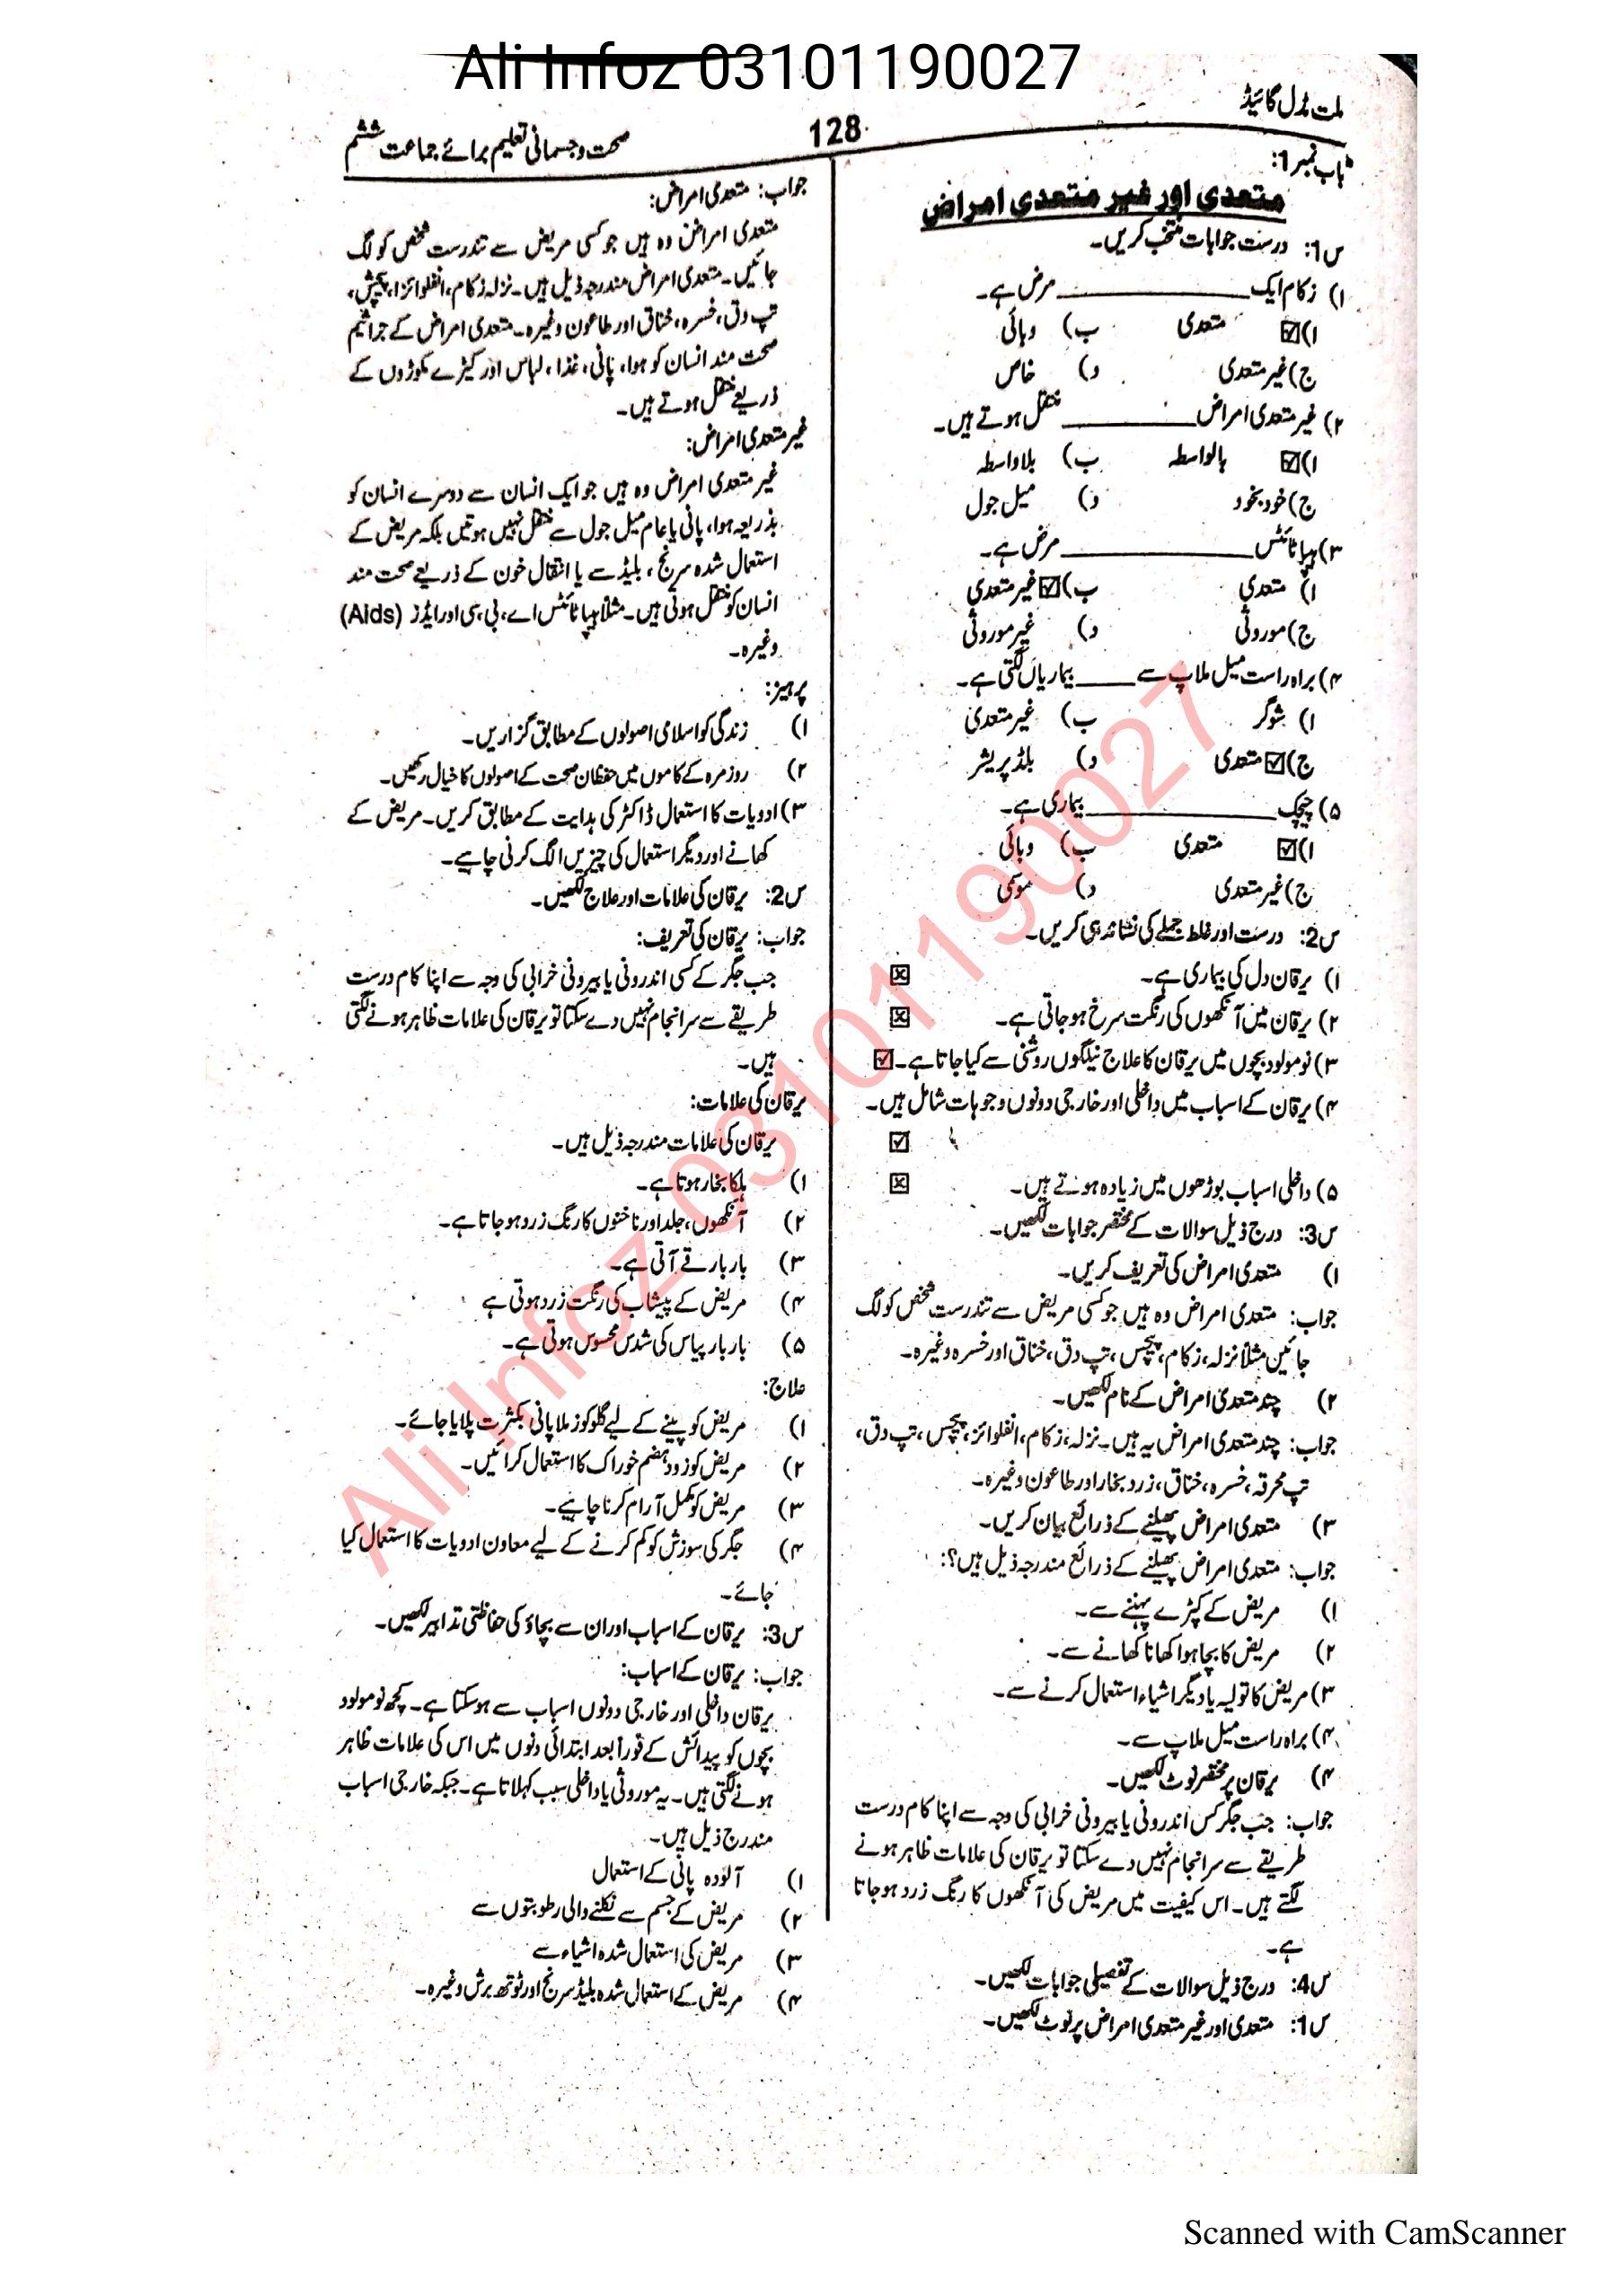 Ali Infoz 03101190027
ملت مڈل گائیڈ
128
صحت و جسمانی تعلیم برائے جماعت ششم
باب نمبر 1:
متعدی اور غیر متعدی امراض
س1: درست جوابات منتخب کریں۔
۱) زکام ایک ____________ مرض ہے۔
ا)☑ متعدی ب) وبائی
ج) غیر متعدی د) خاص
۲) غیر متعدی امراض ____________ منتقل ہوتے ہیں۔
ا)☑ بالواسطہ ب) بلاواسطہ
ج) خود بخود د) میل جول
۳) ہیپاٹائٹس ____________ مرض ہے۔
ا) متعدی ب)☑ غیر متعدی
ج) موروثی د) غیر موروثی
۴) براہ راست میل ملاپ سے _____ بیماریاں لگتی ہے۔
ا) شوگر ب) غیر متعدی
ج)☑ متعدی د) بلڈ پریشر
۵) چیچک ____________ بیماری ہے۔
ا)☑ متعدی ب) وبائی
ج) غیر متعدی د) موسمی
س2: درست اور غلط جملے کی نشاندہی کریں۔
۱) یرقان دل کی بیماری ہے۔ ☒
۲) یرقان میں آنکھوں کی رنگت سرخ ہو جاتی ہے۔ ☒
۳) نومولود بچوں میں یرقان کا علاج نیلگوں روشنی سے کیا جاتا ہے۔ ☑
۴) یرقان کے اسباب میں داخلی اور خارجی دونوں وجوہات شامل ہیں۔
☑
۵) داخلی اسباب بوڑھوں میں زیادہ ہوتے ہیں۔ ☒
س3: درج ذیل سوالات کے مختصر جوابات لکھیں۔
۱) متعدی امراض کی تعریف کریں۔
جواب: متعدی امراض وہ ہیں جو کسی مریض سے تندرست شخص کو لگ
جائیں مثلاً نزلہ، زکام، پیچس، تپ دق، خناق اور خسرہ وغیرہ۔
۲) چند متعدی امراض کے نام لکھیں۔
جواب: چند متعدی امراض یہ ہیں۔ نزلہ، زکام، انفلوائز، پیچس، تپ دق،
تپ محرقہ، خسرہ، خناق، زرد بخار اور طاعون وغیرہ۔
۳) متعدی امراض پھیلنے کے ذرائع بیان کریں۔
جواب: متعدی امراض پھیلنے کے ذرائع مندرجہ ذیل ہیں؟:
۱) مریض کے کپڑے پہننے سے۔
۲) مریض کا بچا ہوا کھانا کھانے سے۔
۳) مریض کا تولیہ یا دیگر اشیاء استعمال کرنے سے۔
۴) براہ راست میل ملاپ سے۔
۴) یرقان پر مختصر نوٹ لکھیں۔
جواب: جب جگر کس اندرونی یا بیرونی خرابی کی وجہ سے اپنا کام درست
طریقے سے سرانجام نہیں دے سکتا تو یرقان کی علامات ظاہر ہونے
لگتے ہیں۔ اس کیفیت میں مریض کی آنکھوں کا رنگ زرد ہو جاتا
ہے۔
س4: درج ذیل سوالات کے تفصیلی جوابات لکھیں۔
س1: متعدی اور غیر متعدی امراض پر نوٹ لکھیں۔
جواب: متعدی امراض:
متعدی امراض وہ ہیں جو کسی مریض سے تندرست شخص کو لگ
جائیں۔ متعدی امراض مندرجہ ذیل ہیں۔ نزلہ زکام، انفلوائزا، پیچش،
تپ دق، خسرہ، خناق اور طاعون وغیرہ۔ متعدی امراض کے جراثیم
صحت مند انسان کو ہوا، پانی، غذا، لباس اور کیڑے مکوڑوں کے
ذریعے منتقل ہوتے ہیں۔
غیر متعدی امراض:
غیر متعدی امراض وہ ہیں جو ایک انسان سے دوسرے انسان کو
بذریعہ ہوا، پانی یا عام میل جول سے منتقل نہیں ہوتیں بلکہ مریض کے
استعمال شدہ سرنج، بلیڈ سے یا انتقال خون کے ذریعے صحت مند
انسان کو منتقل ہوتی ہیں۔ مثلاً ہیپاٹائٹس اے، بی، سی اور ایڈز (Aids)
وغیرہ۔
پرہیز:
۱) زندگی کو اسلامی اصولوں کے مطابق گزاریں۔
۲) روزمرہ کے کاموں میں حفظان صحت کے اصولوں کا خیال رکھیں۔
۳) ادویات کا استعمال ڈاکٹر کی ہدایت کے مطابق کریں۔ مریض کے
کھانے اور دیگر استعمال کی چیزیں الگ کرنی چاہیے۔
س2: یرقان کی علامات اور علاج لکھیں۔
جواب: یرقان کی تعریف:
جب جگر کے کسی اندرونی یا بیرونی خرابی کی وجہ سے اپنا کام درست
طریقے سے سرانجام نہیں دے سکتا تو یرقان کی علامات ظاہر ہونے لگتی
ہیں۔
یرقان کی علامات:
یرقان کی علامات مندرجہ ذیل ہیں۔
۱) ہلکا بخار ہوتا ہے۔
۲) آنکھوں، جلد اور ناخنوں کا رنگ زرد ہو جاتا ہے۔
۳) بار بار قے آتی ہے۔
۴) مریض کے پیشاب کی رنگت زرد ہوتی ہے
۵) بار بار پیاس کی شدس محسوس ہوتی ہے۔
علاج:
۱) مریض کو پینے کے لیے گلوکوز ملا پانی بکثرت پلایا جائے۔
۲) مریض کو زود ہضم خوراک کا استعمال کرائیں۔
۳) مریض کو مکمل آرام کرنا چاہیے۔
۴) جگر کی سوزش کو کم کرنے کے لیے معاون ادویات کا استعمال کیا
جائے۔
س3: یرقان کے اسباب اور ان سے بچاؤ کی حفاظتی تدابیر لکھیں۔
جواب: یرقان کے اسباب:
یرقان داخلی اور خارجی دونوں اسباب سے ہو سکتا ہے۔ کچھ نومولود
بچوں کو پیدائش کے فوراً بعد ابتدائی دنوں میں اس کی علامات ظاہر
ہونے لگتی ہیں۔ یہ موروثی یا داخلی سبب کہلاتا ہے۔ جبکہ خارجی اسباب
مندرج ذیل ہیں۔
۱) آلودہ پانی کے استعمال
۲) مریض کے جسم سے نکلنے والی رطوبتوں سے
۳) مریض کی استعمال شدہ اشیاء سے
۴) مریض کے استعمال شدہ بلیڈ سرنج اور ٹوتھ برش وغیرہ۔
Ali Infoz 03101190027
Scanned with CamScanner